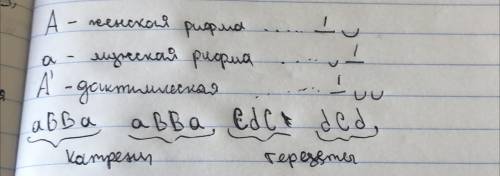 А - женская рифма ..... _́ ◡
а - мужская рифма .... ◡ _́
А' - дактилическая ...... _́ ◡ ◡
аББа аББа CdC dCd,
катрены терцеты